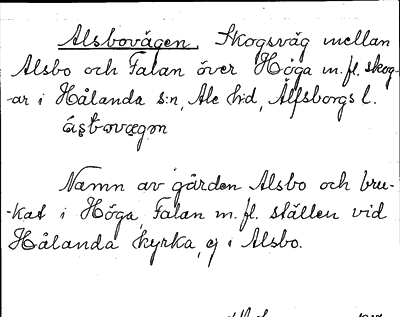 Alsbovägen. Skogsväg mellan
Alsbo och Falan över Höga m.fl. skog-
-ar i Hålanda s:n, Ale h:d, Älfsborgs l.
Namn av gården Alsbo och bru-
-kat i Höga, Falan m.fl. ställen vid
Hålanda kyrka, ej i Alsbo.